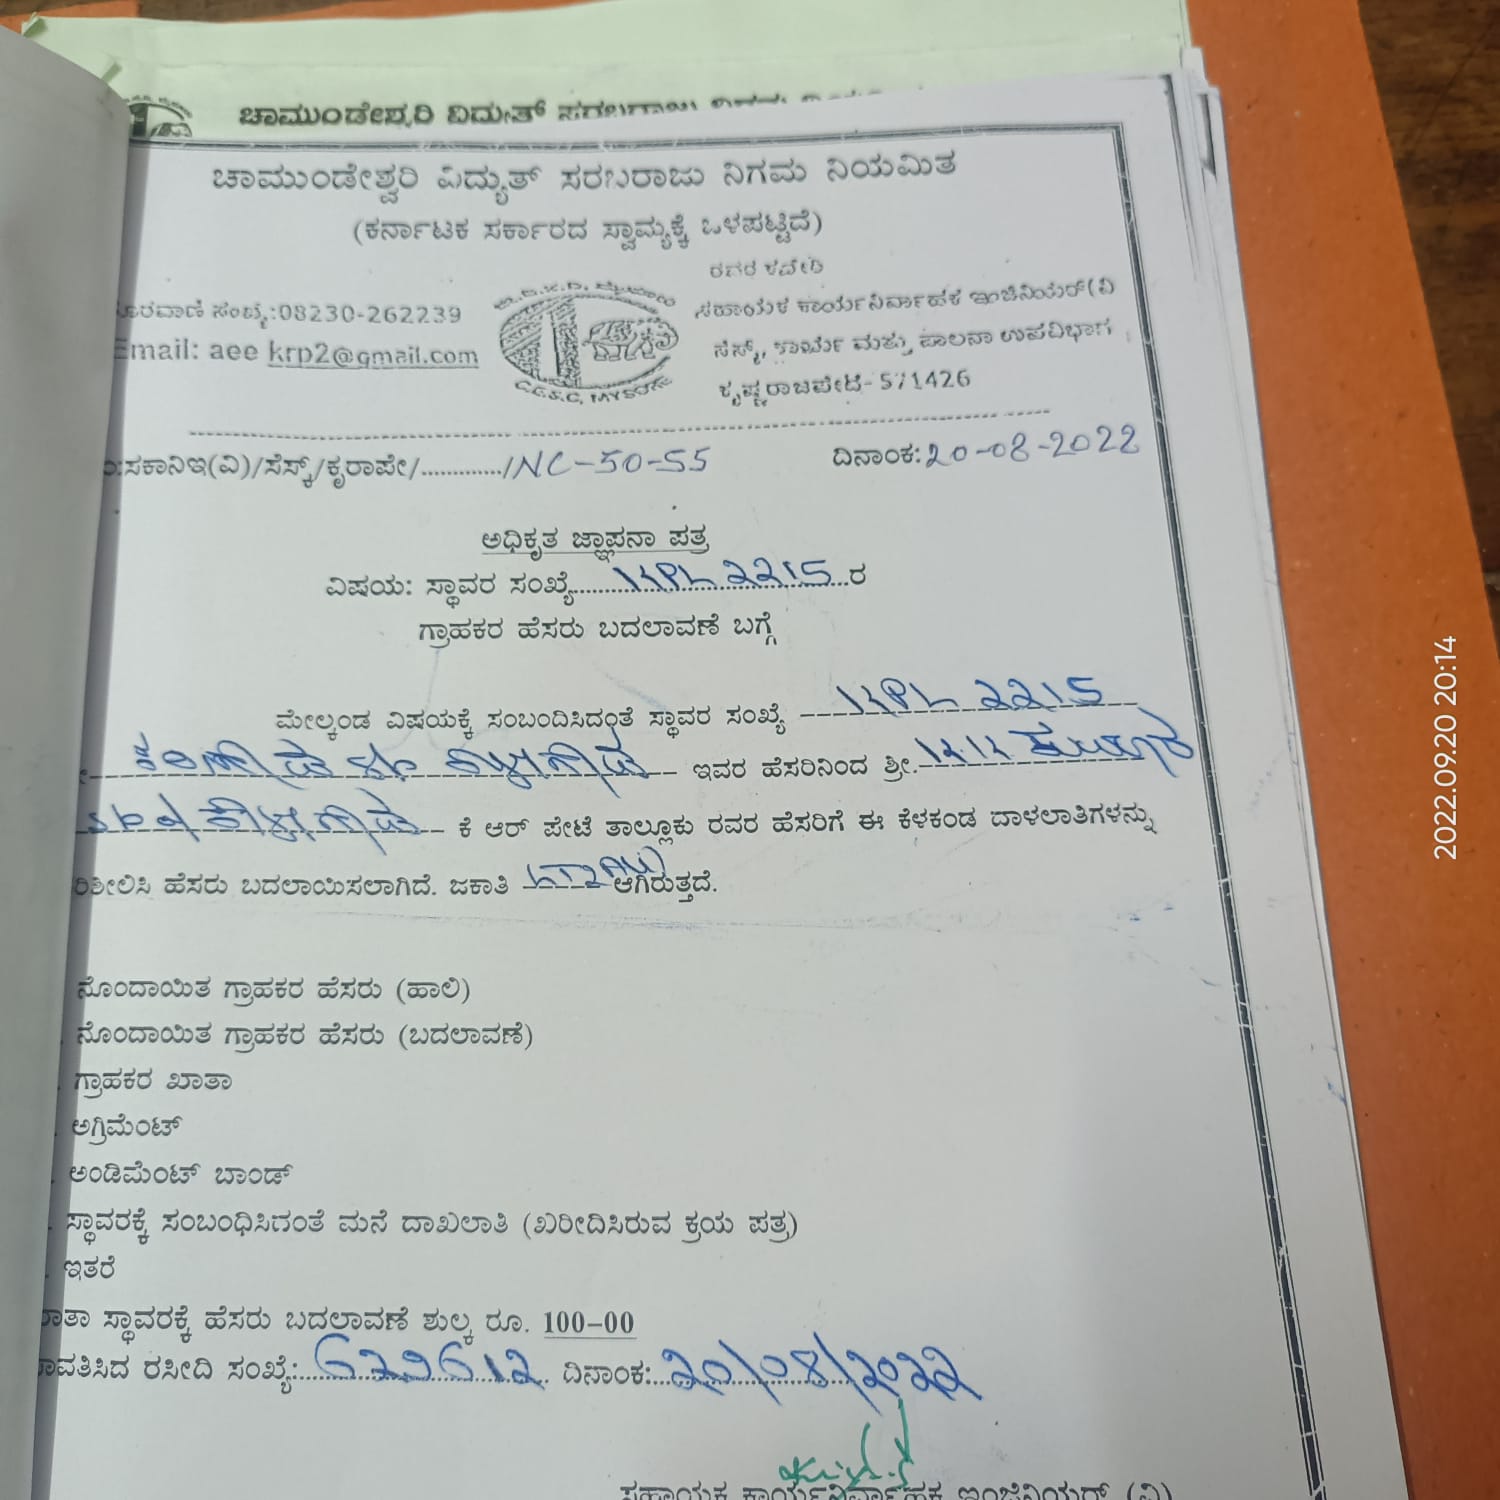 ಚಾಮುಂಡೇಶ್ವರಿ ವಿದ್ಯುತ್ ಸರಬರಾಜು
ಚಾಮುಂಡೇಶ್ವರಿ ವಿದ್ಯುತ್ ಸರಬರಾಜು ನಿಗಮ ನಿಯಮಿತ
(ಕರ್ನಾಟಕ ಸರ್ಕಾರದ ಸ್ವಾಮ್ಯಕ್ಕೆ ಒಳಪಟ್ಟಿದೆ)
ರವರ ಕಚೇರಿ
ಸಹಾಯಕ ಕಾರ್ಯನಿರ್ವಾಹಕ ಇಂಜಿನಿಯರ್(ವಿ
ಸೆಸ್ಕ್, ಕಾರ್ಯ ಮತ್ತು ಪಾಲನಾ ಉಪವಿಭಾಗ
ಕೃಷ್ಣರಾಜಪೇಟೆ- 571426
ದೂರವಾಣಿ ಸಂಖ್ಯೆ:08230-262239
Email: aee krp2@gmail.com
C.E.S.C, MYSORE
:ಸಕಾನಿಇ(ವಿ)/ಸೆಸ್ಕ್/ಕೃರಾಪೇ/............./NC-50-55 ದಿನಾಂಕ:20-08-2022
ಅಧಿಕೃತ ಜ್ಞಾಪನಾ ಪತ್ರ
ವಿಷಯ: ಸ್ಥಾವರ ಸಂಖ್ಯೆ..........KPL 2215...ರ
ಗ್ರಾಹಕರ ಹೆಸರು ಬದಲಾವಣೆ ಬಗ್ಗೆ
ಮೇಲ್ಕಂಡ ವಿಷಯಕ್ಕೆ ಸಂಬಂದಿಸಿದಂತೆ ಸ್ಥಾವರ ಸಂಖ್ಯೆ KPL 2215
ಇವರ ಹೆಸರಿನಿಂದ ಶ್ರೀ.
ಕೆ ಆರ್ ಪೇಟೆ ತಾಲ್ಲೂಕು ರವರ ಹೆಸರಿಗೆ ಈ ಕೆಳಕಂಡ ದಾಳಲಾತಿಗಳನ್ನು
ರಿಶೀಲಿಸಿ ಹೆಸರು ಬದಲಾಯಿಸಲಾಗಿದೆ. ಜಕಾತಿ ಆಗಿರುತ್ತದೆ.
ನೊಂದಾಯಿತ ಗ್ರಾಹಕರ ಹೆಸರು (ಹಾಲಿ)
ನೊಂದಾಯಿತ ಗ್ರಾಹಕರ ಹೆಸರು (ಬದಲಾವಣೆ)
ಗ್ರಾಹಕರ ಖಾತಾ
ಅಗ್ರಿಮೆಂಟ್
ಅಂಡಿಮೆಂಟ್ ಬಾಂಡ್
ಸ್ಥಾವರಕ್ಕೆ ಸಂಬಂಧಿಸಿದಂತೆ ಮನೆ ದಾಖಲಾತಿ (ಖರೀದಿಸಿರುವ ಕ್ರಯ ಪತ್ರ)
ಇತರೆ
ಸ್ಥಾವರಕ್ಕೆ ಹೆಸರು ಬದಲಾವಣೆ ಶುಲ್ಕ ರೂ. 100-00
ಪಾವತಿಸಿದ ರಸೀದಿ ಸಂಖ್ಯೆ: ದಿನಾಂಕ:...20/08/2022
ಸಹಾಯಕ ಕಾರ್ಯನಿರ್ವಾಹಕ ಇಂಜಿನಿಯರ್ (ವಿ)
2022.09.20 20:14